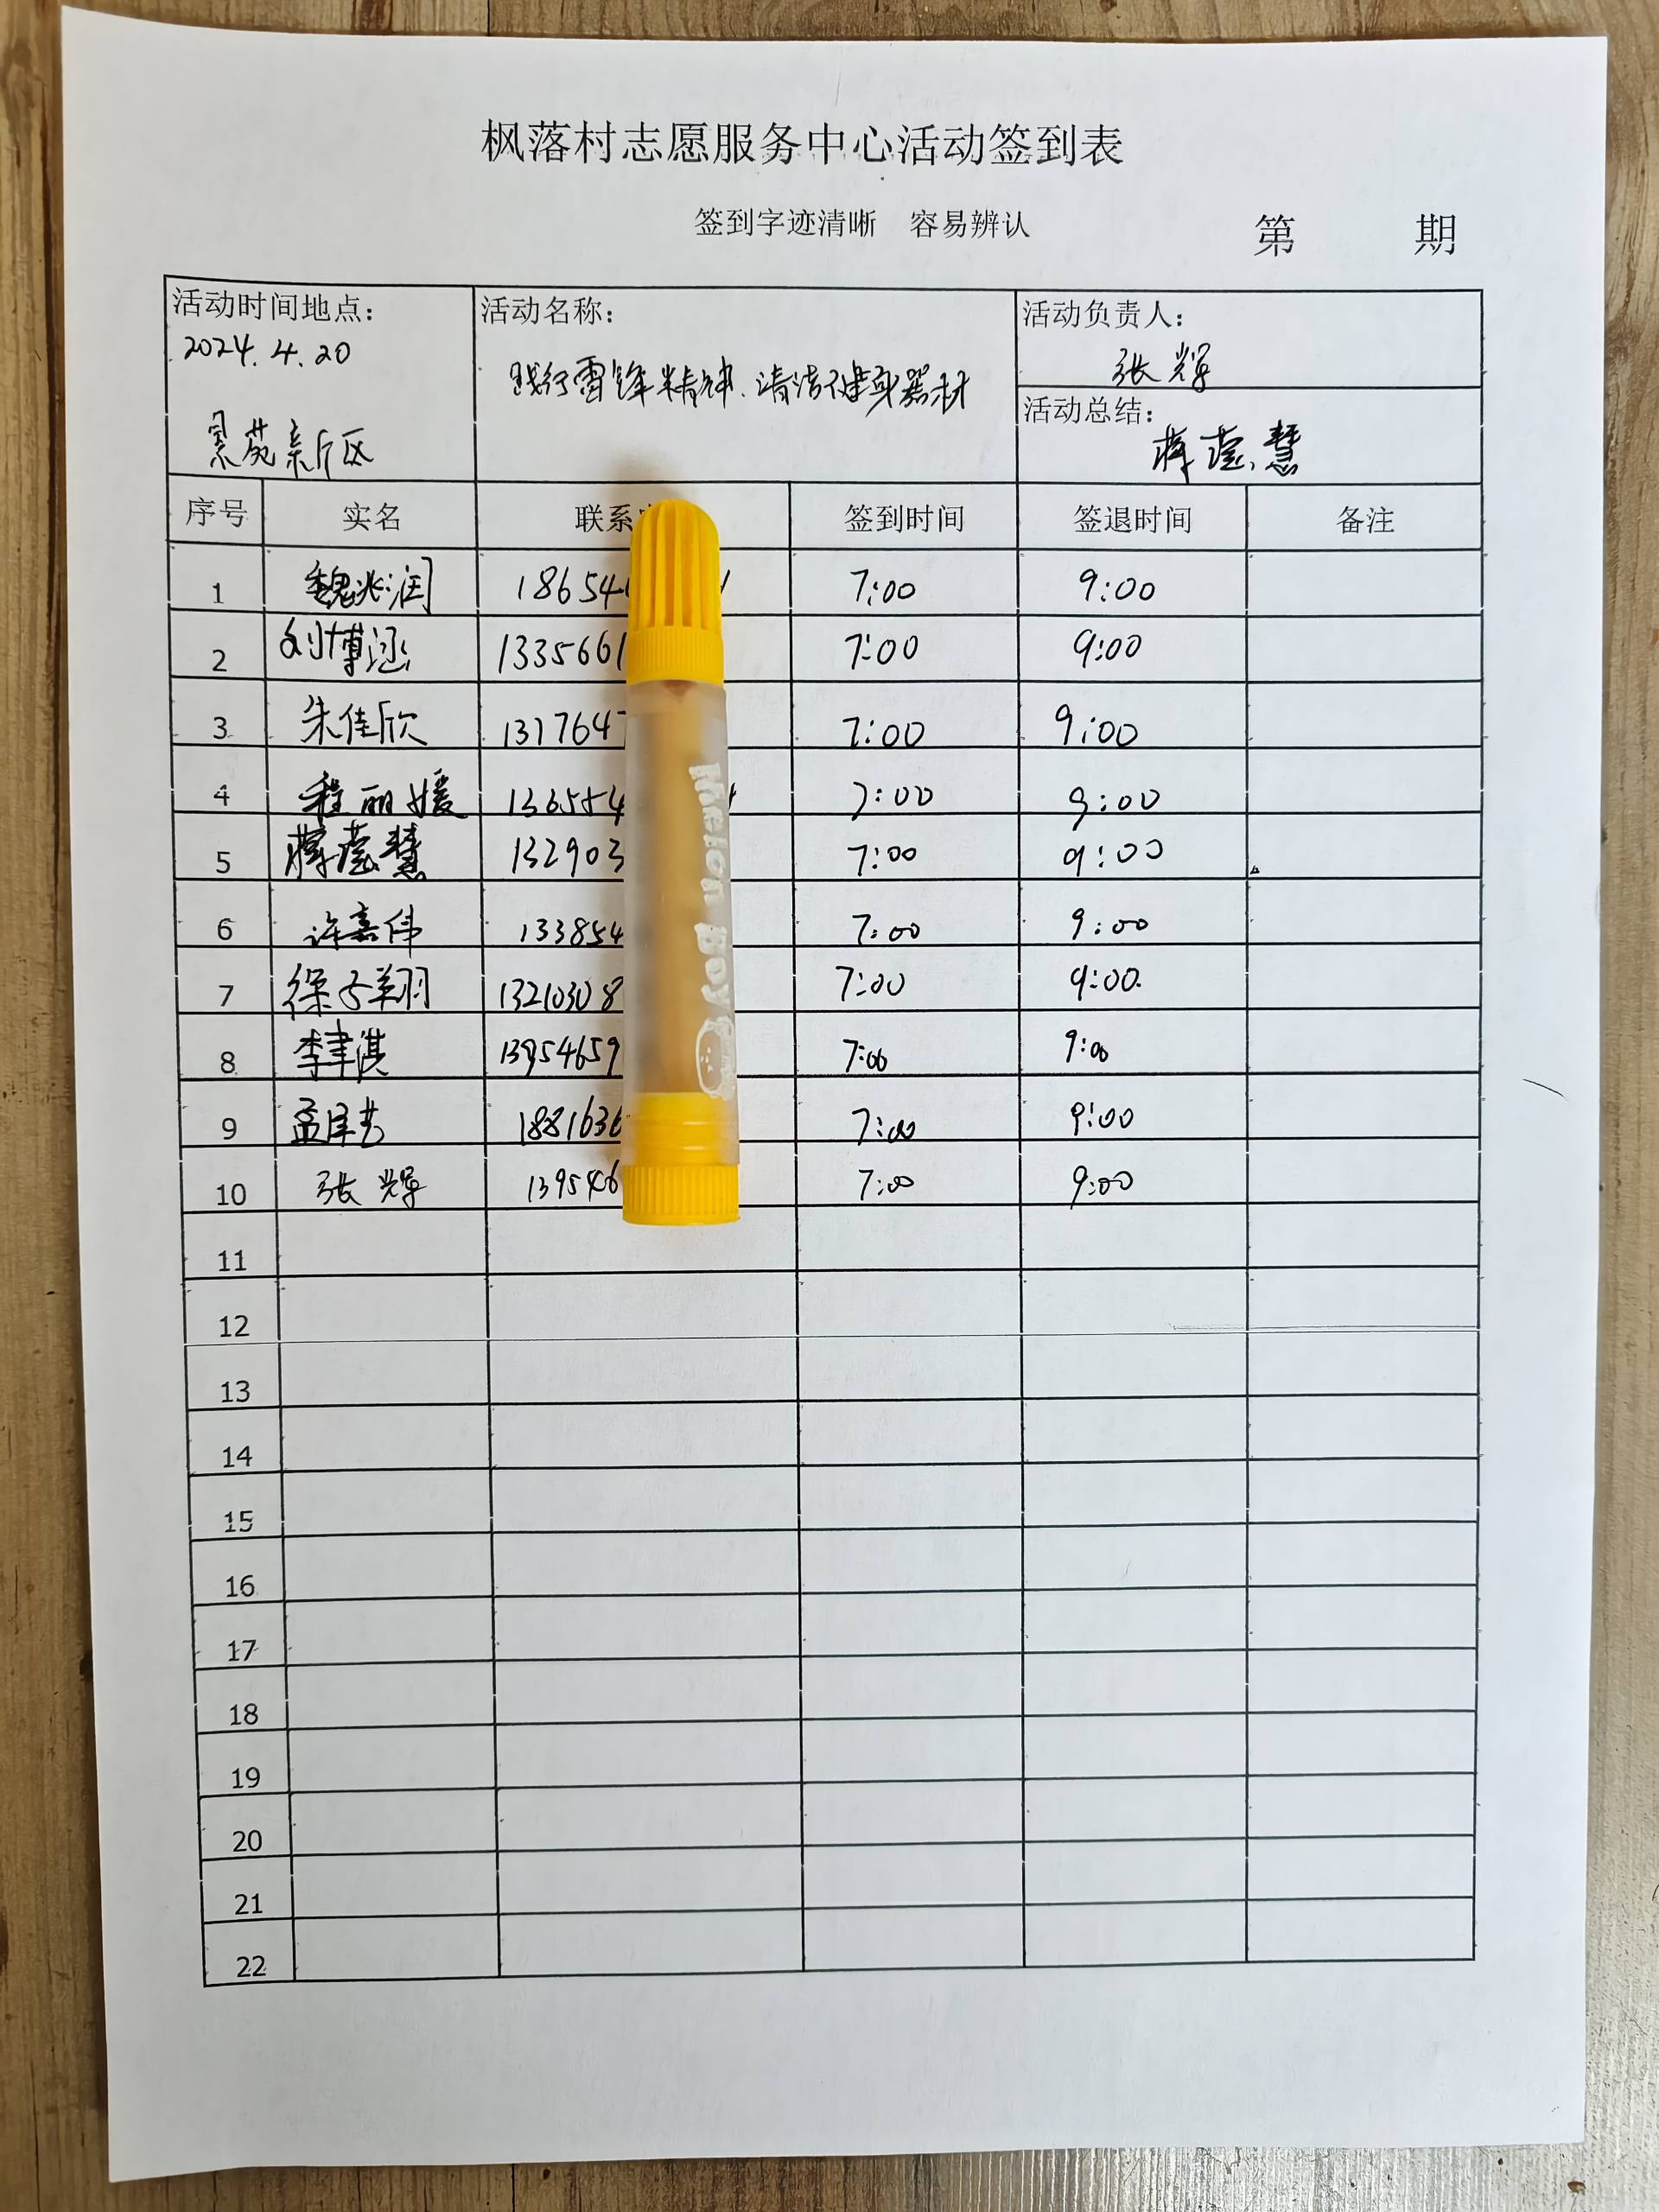 枫落村志愿服务中心活动签到表
签到字迹清晰 容易辨认
第 期
活动时间地点：
2024.4.20
景苑新区
活动名称：
践行雷锋精神.清洁健身器材
活动负责人：
张辉
活动总结：
蒋莹慧
序号 实名 联系 签到时间 签退时间 备注
1 魏兆润 18654 7:00 9:00
2 刘博涵 1335661 7:00 9:00
3 朱佳欣 1317647 7:00 9:00
4 程丽媛 136554 7:00 9:00
5 蒋莹慧 132903 7:00 9:00
6 许嘉伟 133854 7:00 9:00
7 徐子翔 13210308 7:00 9:00.
8 李聿淇 13954659 7:00 9:00
9 孟泽艺 1881636 7:00 9:00
10 张辉 139546 7:00 9:00
11
12
13
14
15
16
17
18
19
20
21
22
Melon Boy